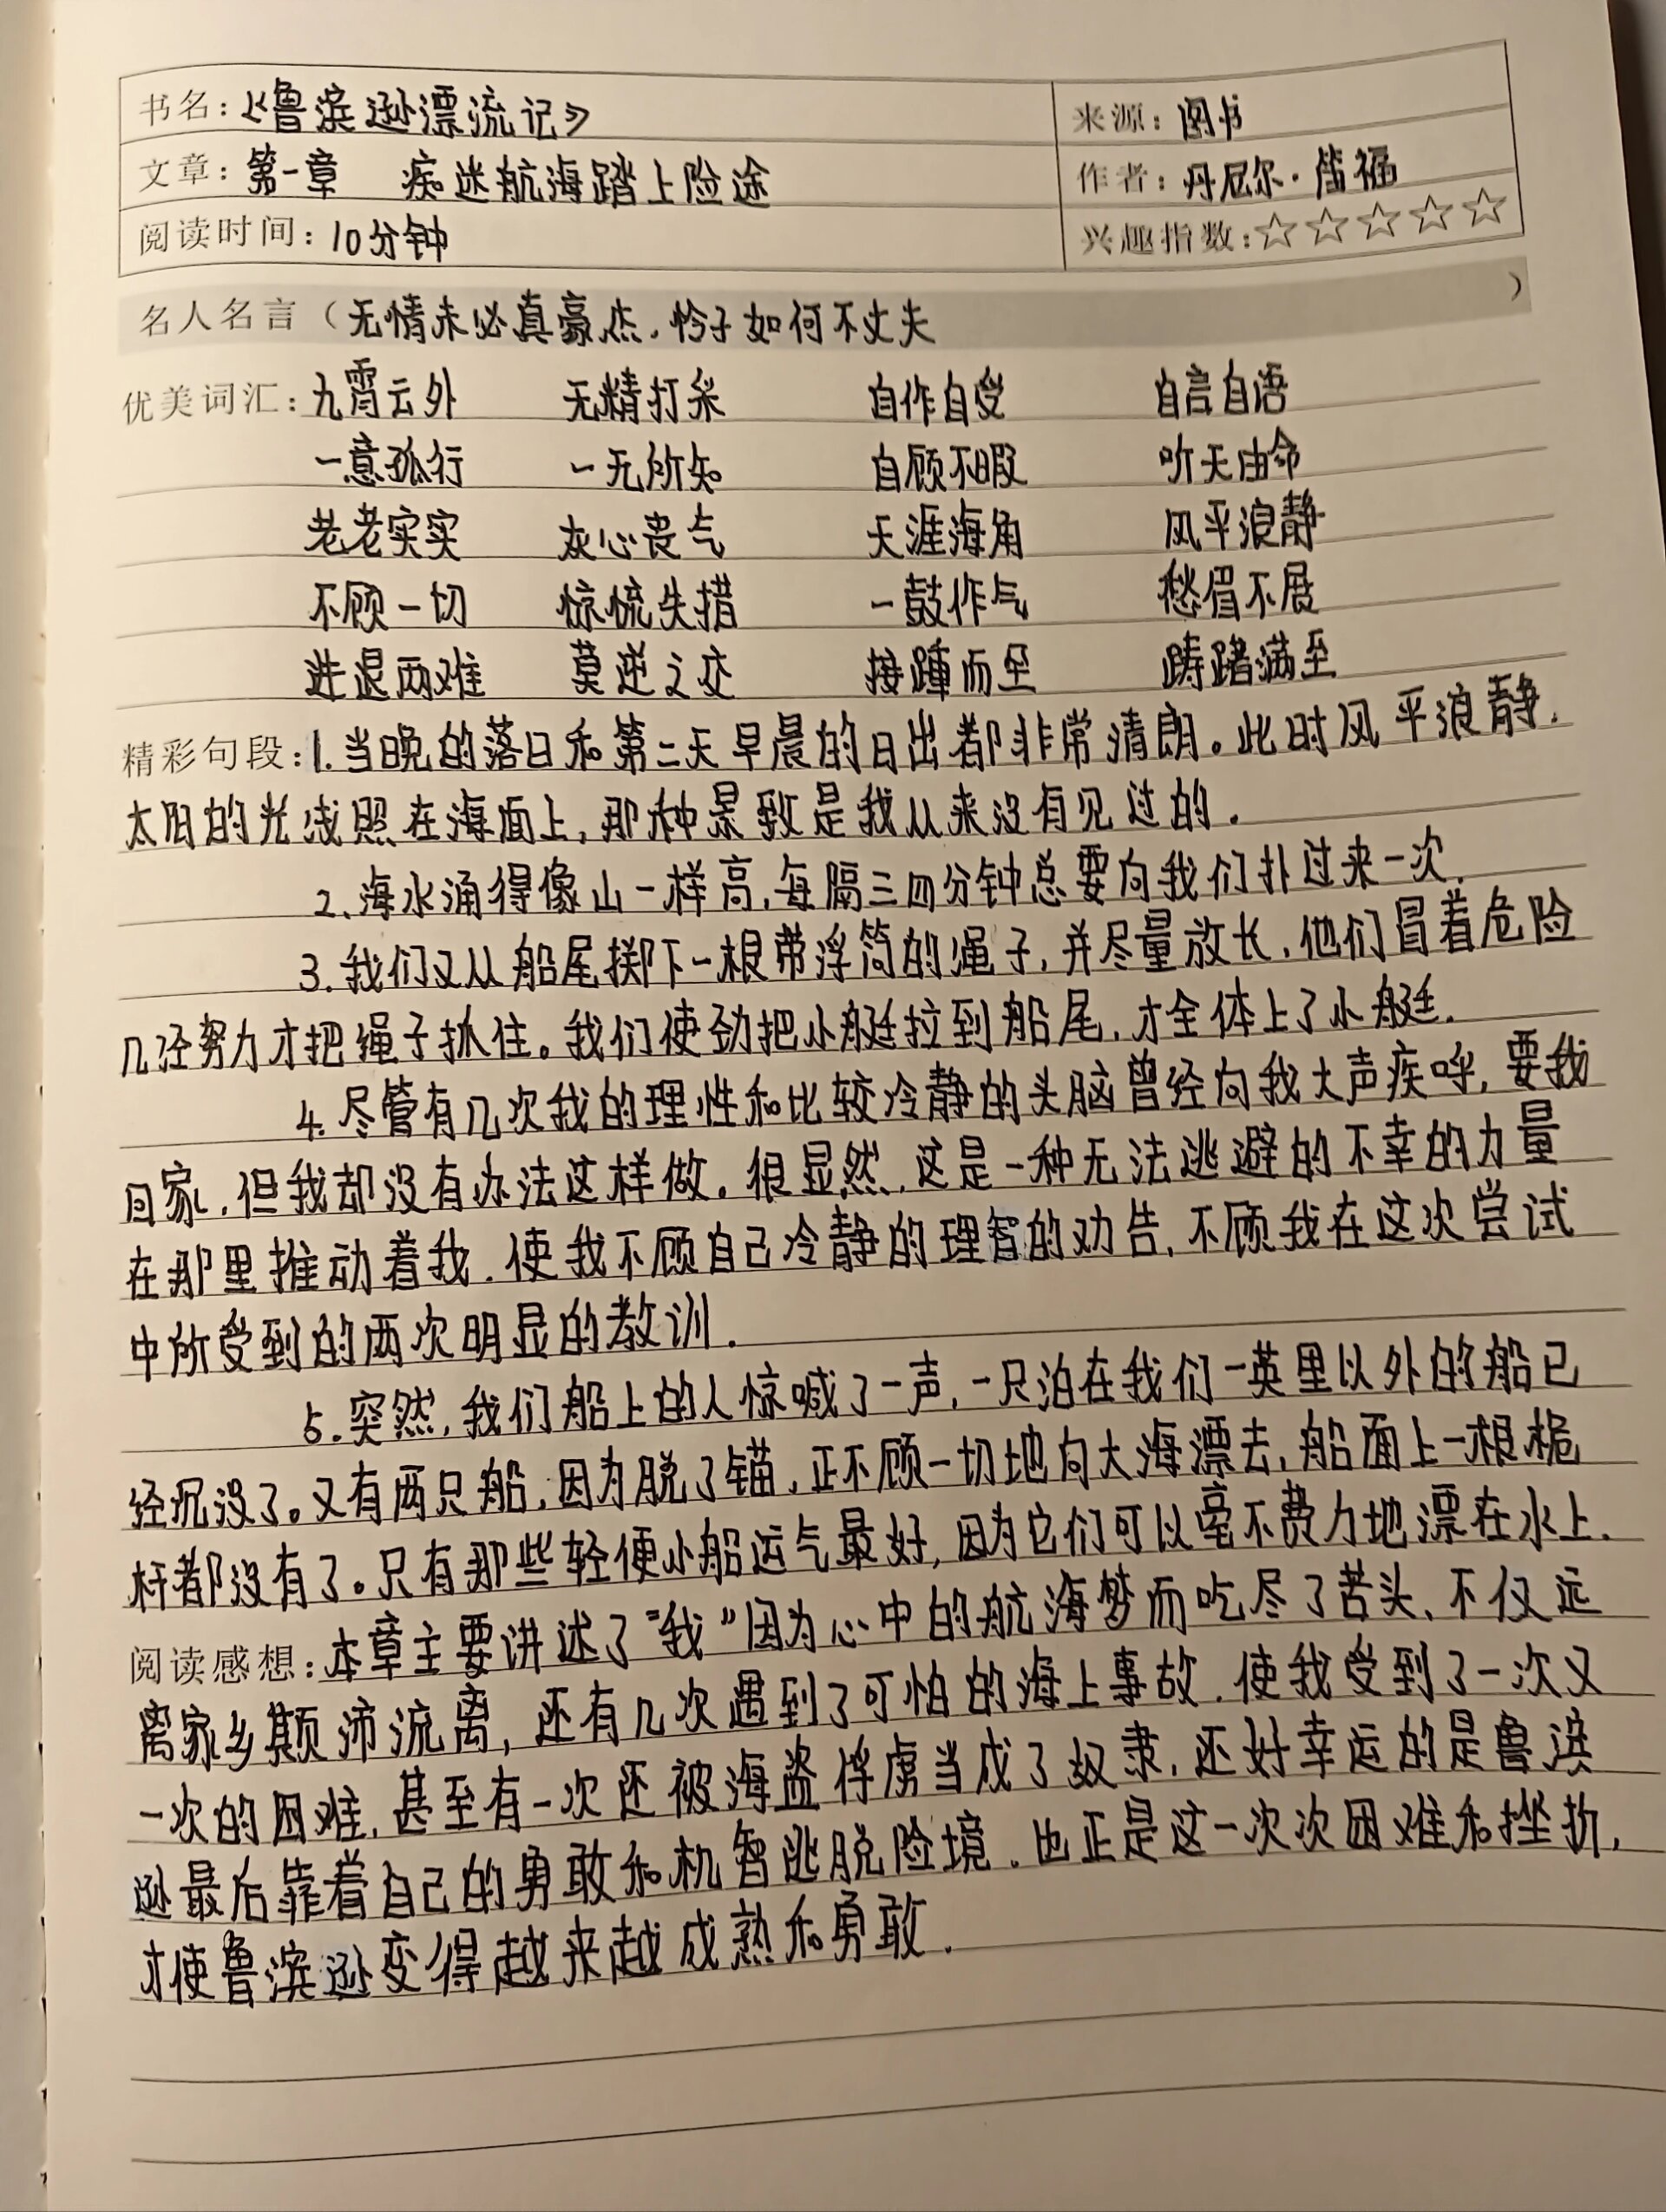 书名：《鲁滨逊漂流记》 来源：图书
文章：第一章 痴迷航海踏上险途 作者：丹尼尔·笛福
阅读时间：10分钟 兴趣指数：☆☆☆☆☆
名人名言（无情未必真豪杰，怜子如何不丈夫）
优美词汇：九霄云外 无精打采 自作自受 自言自语
一意孤行 一无所知 自顾不暇 听天由命
老老实实 灰心丧气 天涯海角 风平浪静
不顾一切 惊慌失措 一鼓作气 愁眉不展
进退两难 莫逆之交 接踵而至 踌躇满至
精彩句段：1.当晚的落日和第二天早晨的日出都非常清朗。此时风平浪静.
太阳的光线照在海面上,那种景致是我从来没有见过的.
2.海水涌得像山一样高,每隔三四分钟总要向我们扑过来一次.
3.我们又从船尾掷下一根带浮筒的绳子,并尽量放长,他们冒着危险
几经努力才把绳子抓住。我们使劲把小艇拉到船尾,才全体上了小艇.
4.尽管有几次我的理性和比较冷静的头脑曾经向我大声疾呼,要我
回家,但我却没有办法这样做.很显然,这是一种无法逃避的不幸的力量
在那里推动着我.使我不顾自己冷静的理智的劝告,不顾我在这次尝试
中所受到的两次明显的教训.
5.突然,我们船上的人惊喊了一声,一只泊在我们一英里以外的船已
经沉没了。又有两只船,因为脱了锚,正不顾一切地向大海漂去,船面上一根桅
杆都没有了。只有那些轻便小船运气最好,因为它们可以毫不费力地漂在水上.
阅读感想：本章主要讲述了“我”因为心中的航海梦而吃尽了苦头、不仅远
离家乡颠沛流离,还有几次遇到了可怕的海上事故.使我受到了一次又
一次的困难,甚至有一次还被海盗俘虏当成了奴隶,还好幸运的是鲁滨
逊最后靠着自己的勇敢和机智逃脱险境.也正是这一次次困难和挫折,
才使鲁滨逊变得越来越成熟和勇敢.